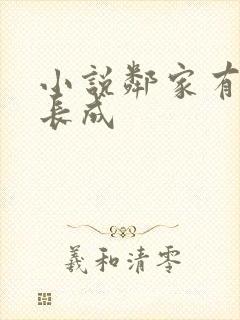 小說鄰家有
長成
羲和清零